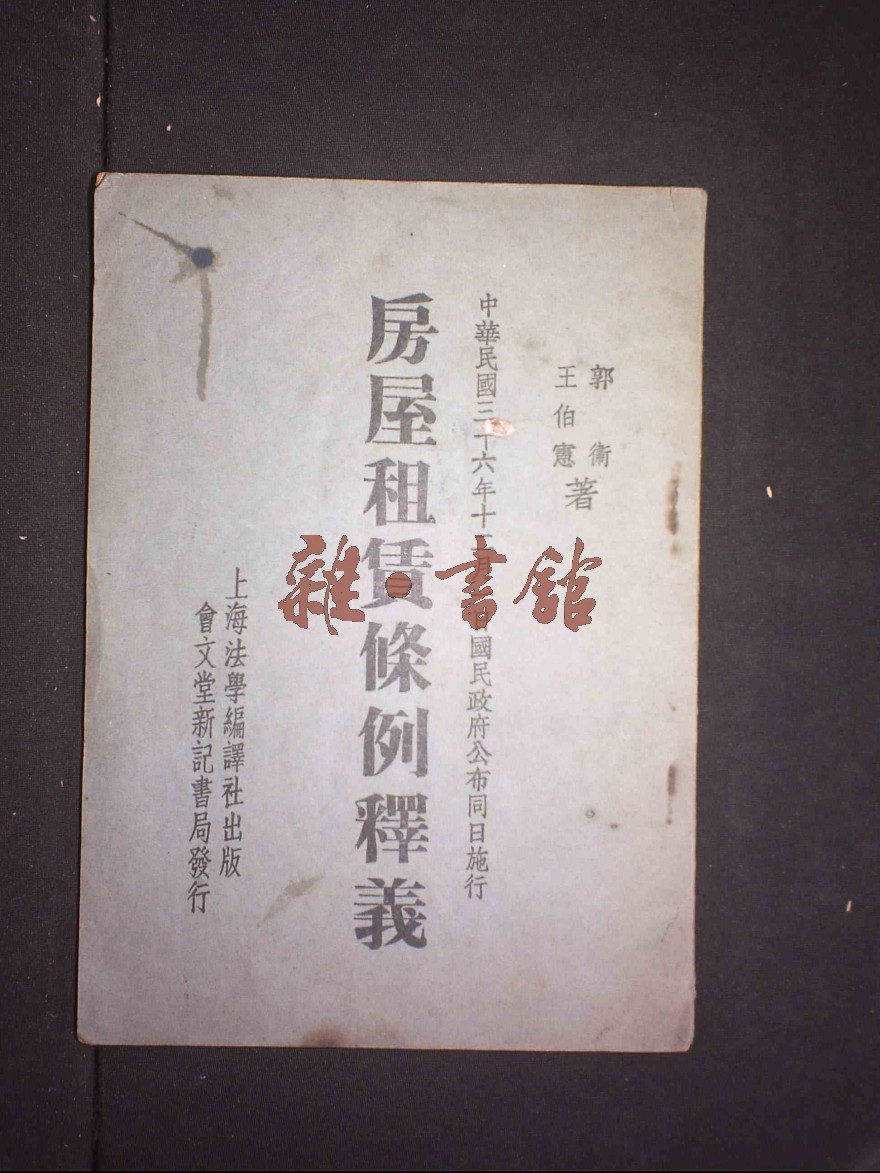 郭衞
王伯憲
著
中華民國三十六年十二月 日國民政府公布同日施行
房屋租賃條例釋義
上海法學編譯社出版
會文堂新記書局發行
雜·書館